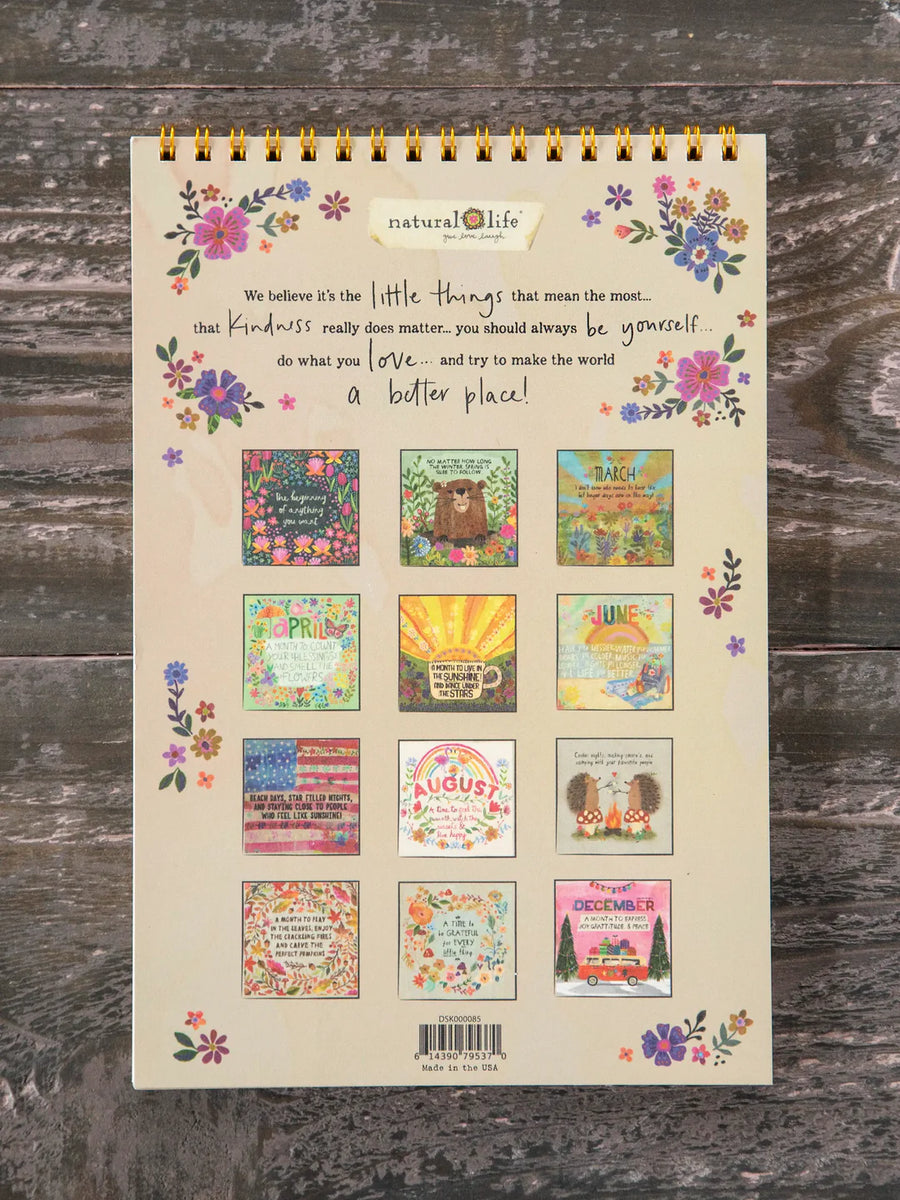 natural life®
give love laugh
We believe it's the little things that mean the most...
that kindness really does matter... you should always be yourself...
do what you love... and try to make the world
a better place!
the beginning
of anything
you want
NO MATTER HOW LONG
THE WINTER, SPRING IS
SURE TO FOLLOW
MARCH
I don't know who needs to hear this
but longer days are on the way!
APRIL
A MONTH TO COUNT
YOUR BLESSINGS
AND SMELL THE
FLOWERS
A MONTH TO LIVE IN
THE SUNSHINE!
AND DANCE UNDER
THE STARS
JUNE
LIFE BETTER
BEACH DAYS, STAR FILLED NIGHTS,
AND STAYING CLOSE TO PEOPLE
WHO FEEL LIKE SUNSHINE!
AUGUST
live happy
Cooler nights, making smores, and
camping with your favorite people
A MONTH TO PLAY
IN THE LEAVES, ENJOY
THE CRACKLING FIRES
AND CARVE THE
PERFECT PUMPKINS
A TIME to
be GRATEFUL
for EVERY
little thing
DECEMBER
A MONTH TO EXPRESS
JOY GRATITUDE & PEACE
DSK000085
6 14390 79537 0
Made in the USA